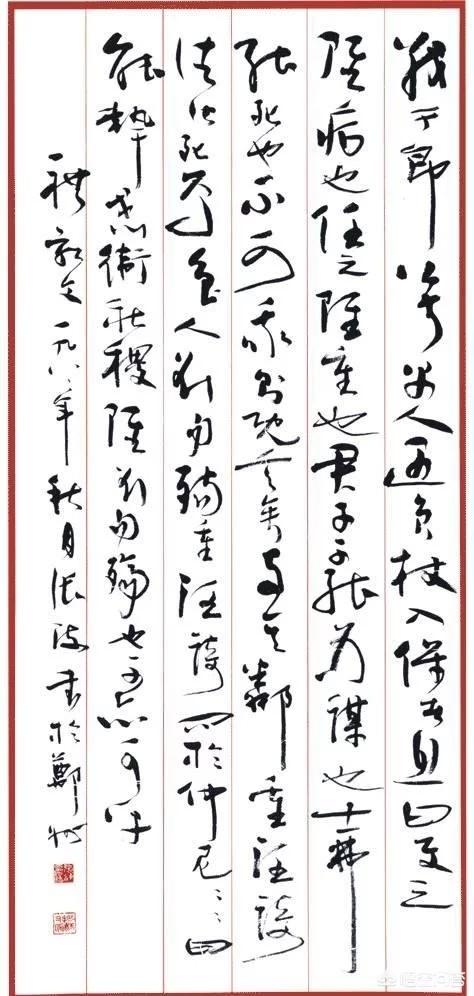 戰于郎公叔禺人遇負杖入保者息曰使之
雖病也任之雖重也君子不能為謀也士弗
能死也不可我則既言矣與其鄰重汪踦
往皆死焉魯人欲勿殤重汪踦問於仲尼〻〻曰
能執干戈以衛社稷雖欲勿殤也不亦可乎
禮記文一九八八年秋月張海書於鄭州